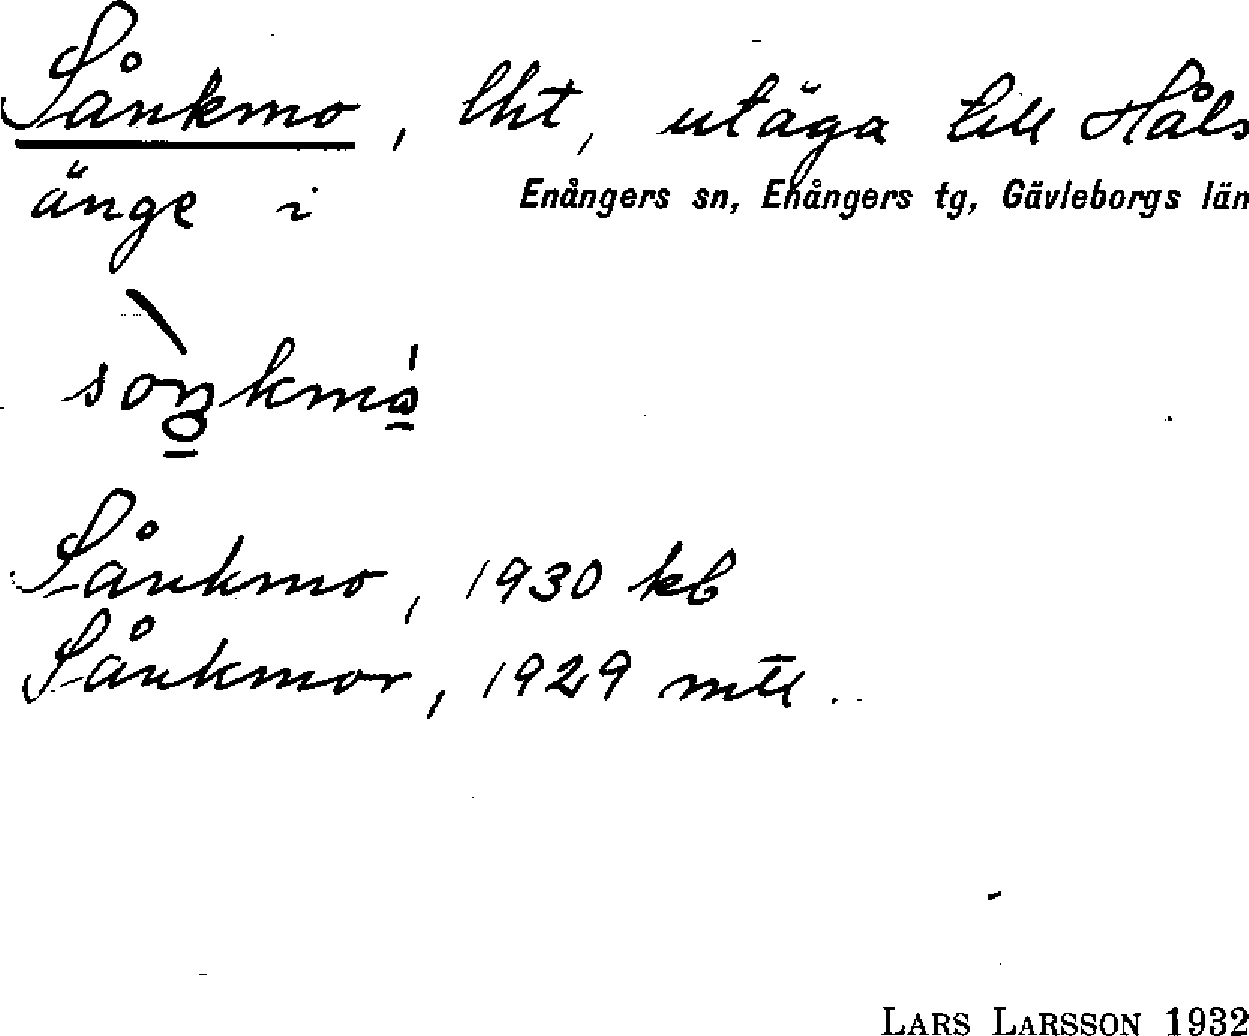 Sånkmo, lht, utäga till Håls
änge i Enångers sn, Enångers tg, Gävleborgs län
Sånkmo, 1930 kb
Sånkmor, 1929 mtl.
LARS LARSSON 1932